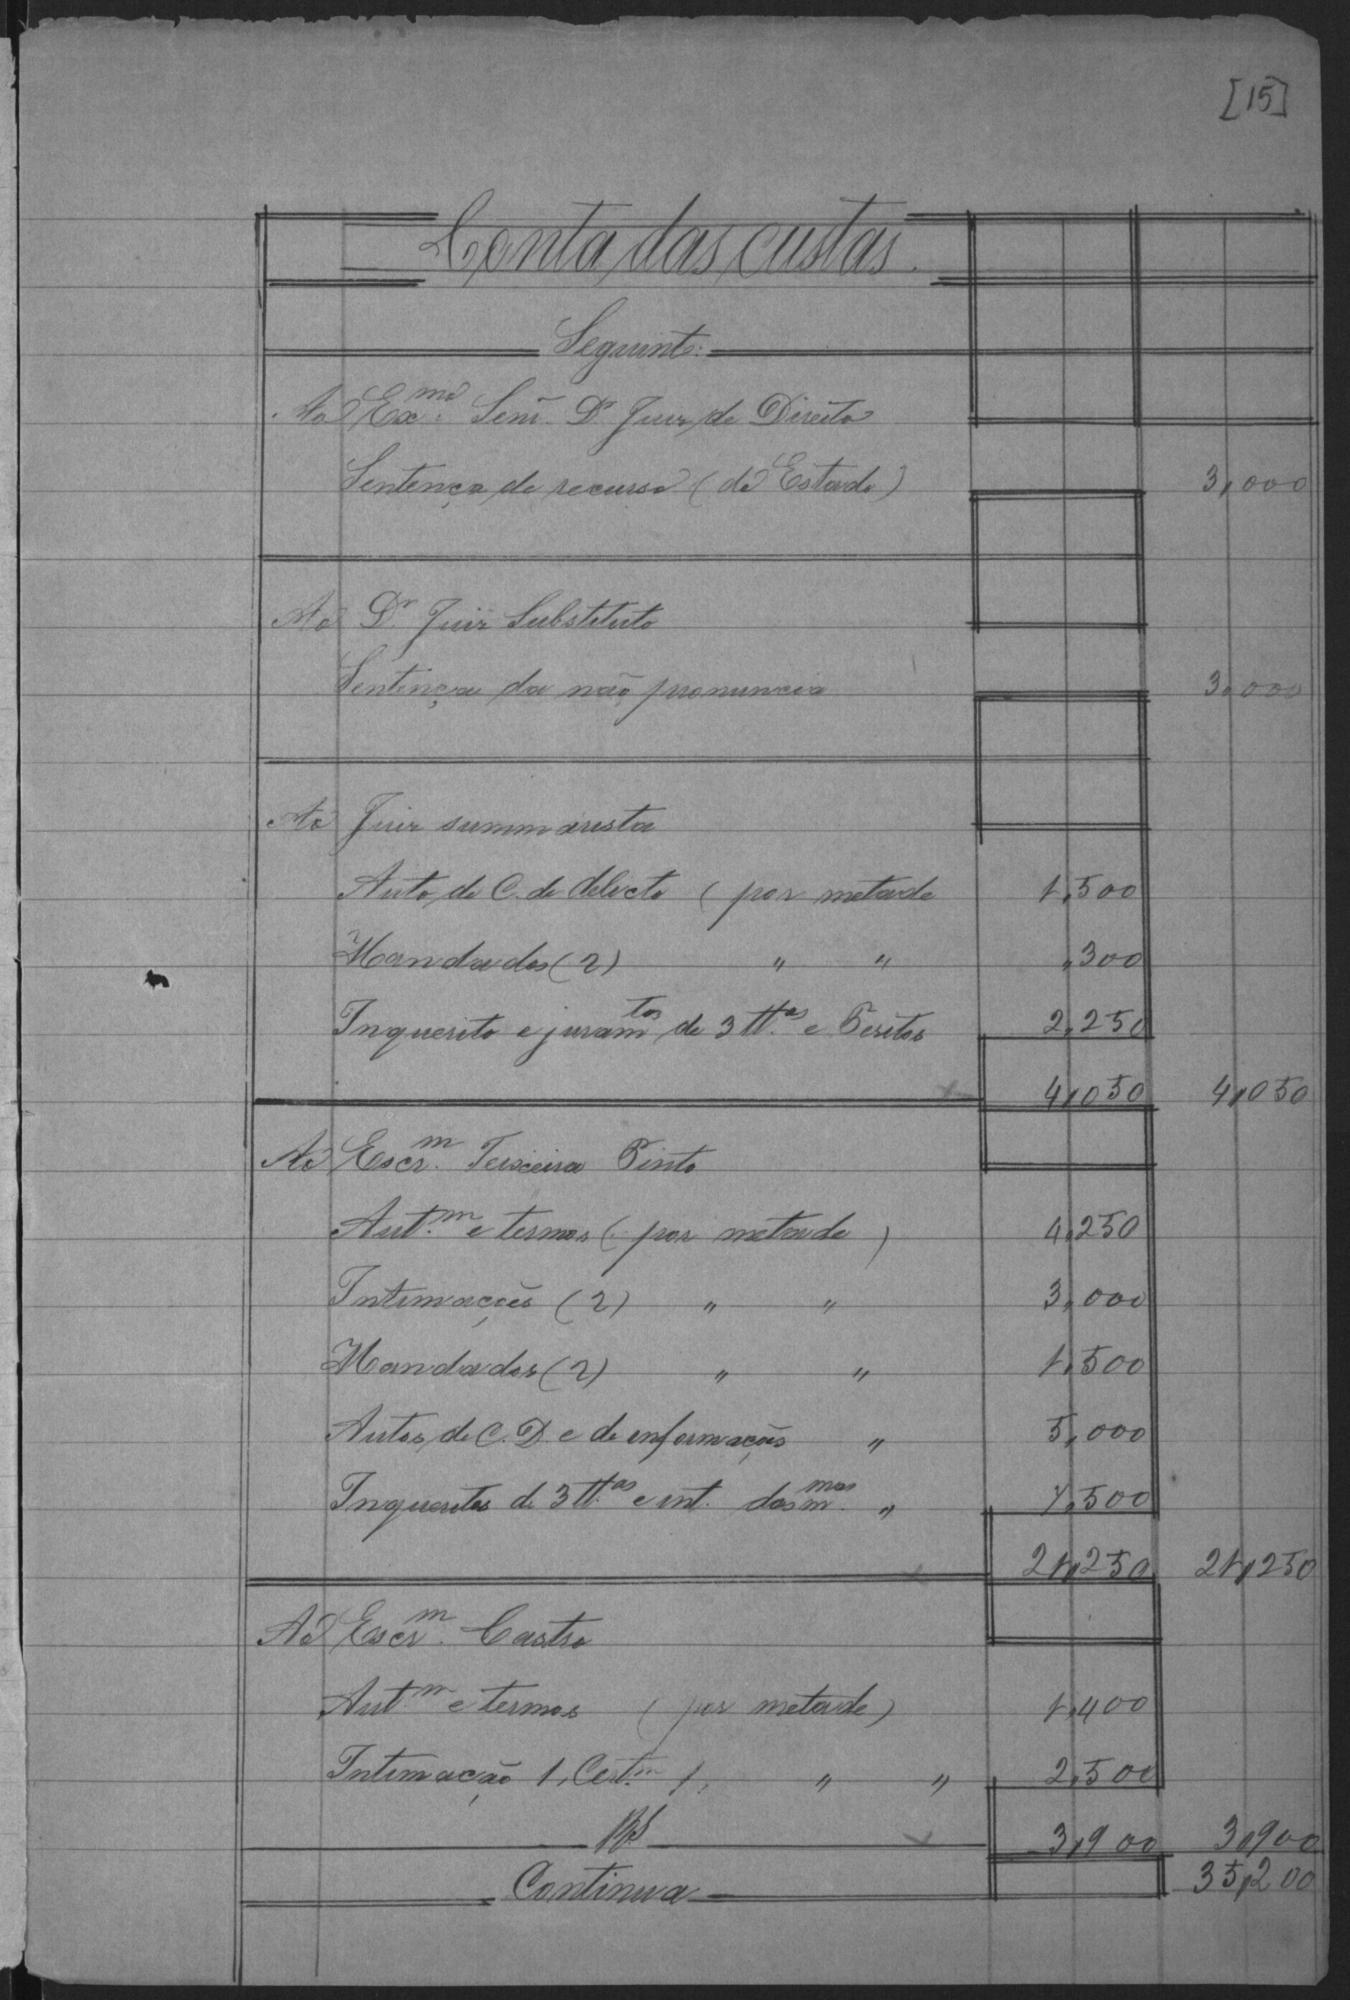 [15]
Conta das custas.
Seguinte:
Ao Ex.mo Senr. Dr Juiz de Direito
Sentença de recurso (do Estado) 3,000
Ao Dr. Juiz Substituto
Sentença da não pronuncia 3,000
Ao Juiz summarista
Auto de C. de delicto (por metade 1,500
Mandados (2) " " ,300
Inquerito e juramtos de 3 tt.as e Peritos 2,250
4,050 4,050
Ao Escr.m Teixeira Pinto
Aut.m e termos (por metade) 4,250
Intimações (2) " " 3,000
Mandados (2) " " 1,500
Autos de C. D. e de informações " 5,000
Inqueritos de 3 tt.as e int. das m.mas " 7,500
21,250 21,250
Ao Escr.m Castro
Autm e termos (por metade) 1,400
Intimação 1, Cert.m 1, " " 2,500
RS 3,900 3,900
Continua 35,200